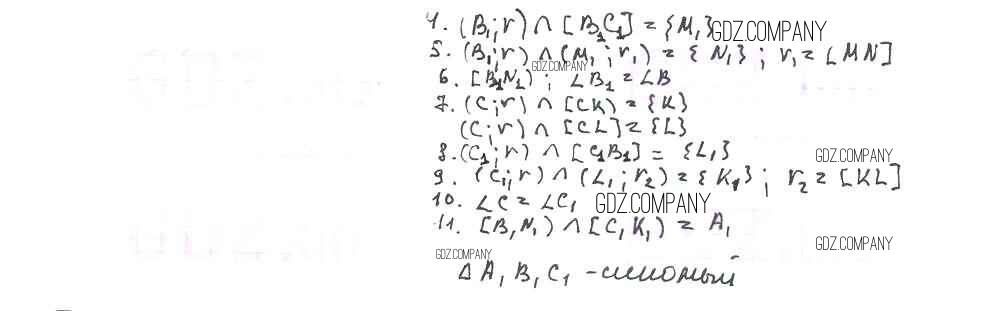 4. (B₁; r) ∩ [B₁C₁] = {M₁} GDZ.COMPANY
5. (B₁; r) ∩ (M₁; r₁) = {N₁}; r₁ = [MN]
GDZ.COMPANY
6. [B₁N₁); ∠B₁ = ∠B
7. (C; r) ∩ [CK) = {K}
(C; r) ∩ [CL] = {L}
8. (C₁; r) ∩ [C₁B₁] = {L₁} GDZ.COMPANY
9. (C₁; r) ∩ (L₁; r₂) = {K₁}; r₂ = [KL]
10. ∠C = ∠C₁ GDZ.COMPANY
11. [B₁N₁) ∩ [C₁K₁) = A₁
GDZ.COMPANY GDZ.COMPANY
Δ A₁B₁C₁ - искомый